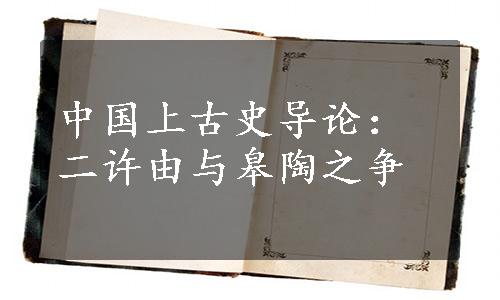 中国上古史导论：
二许由与皋陶之争